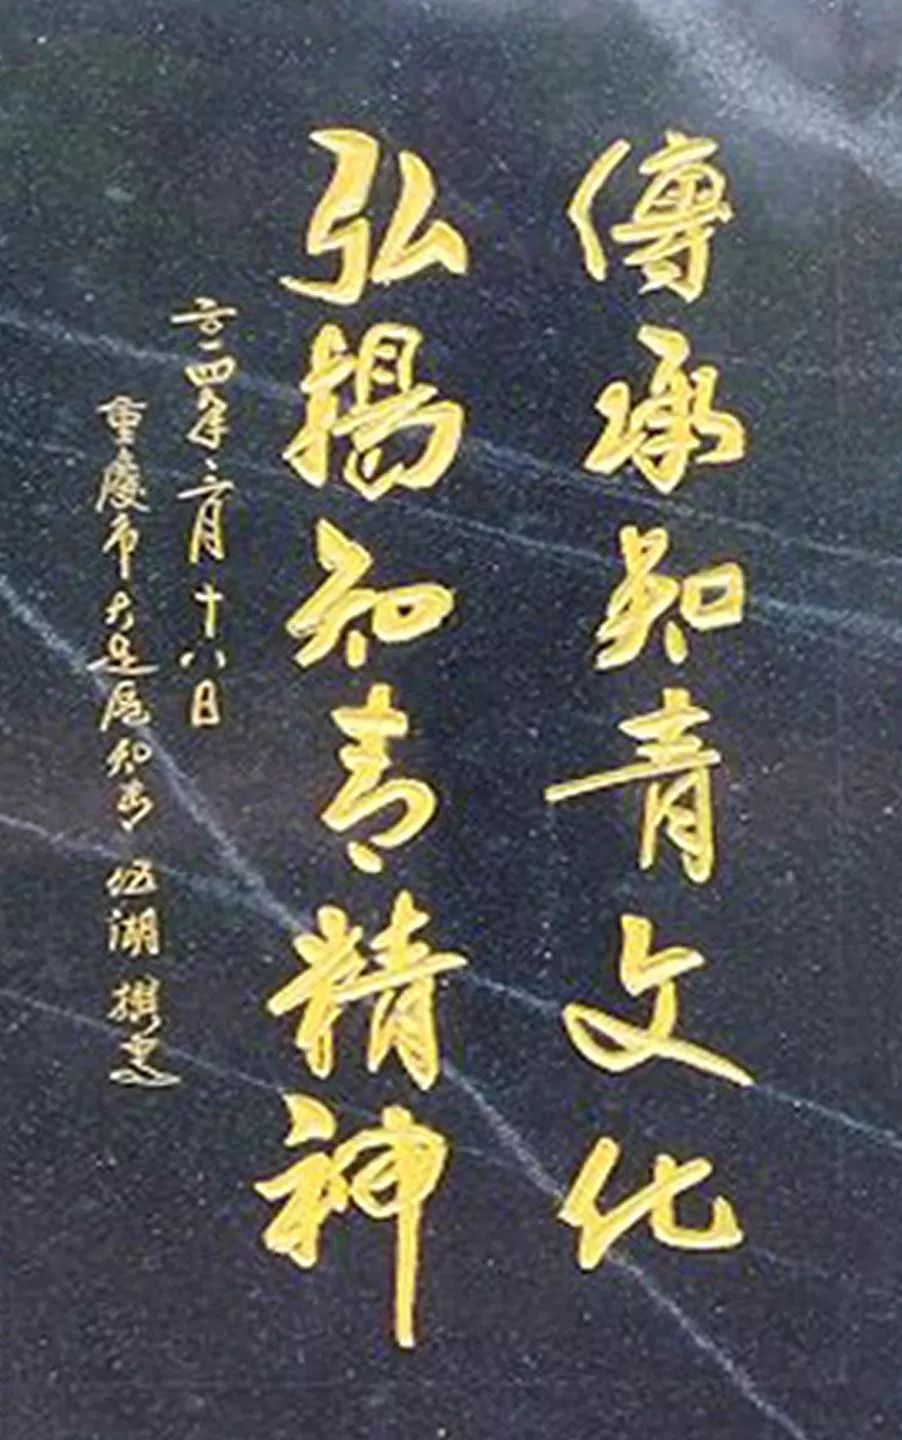 傳承知青文化
弘揚知青精神
二〇一四年六月十八日
重慶市大足區知青 伍湖 撰